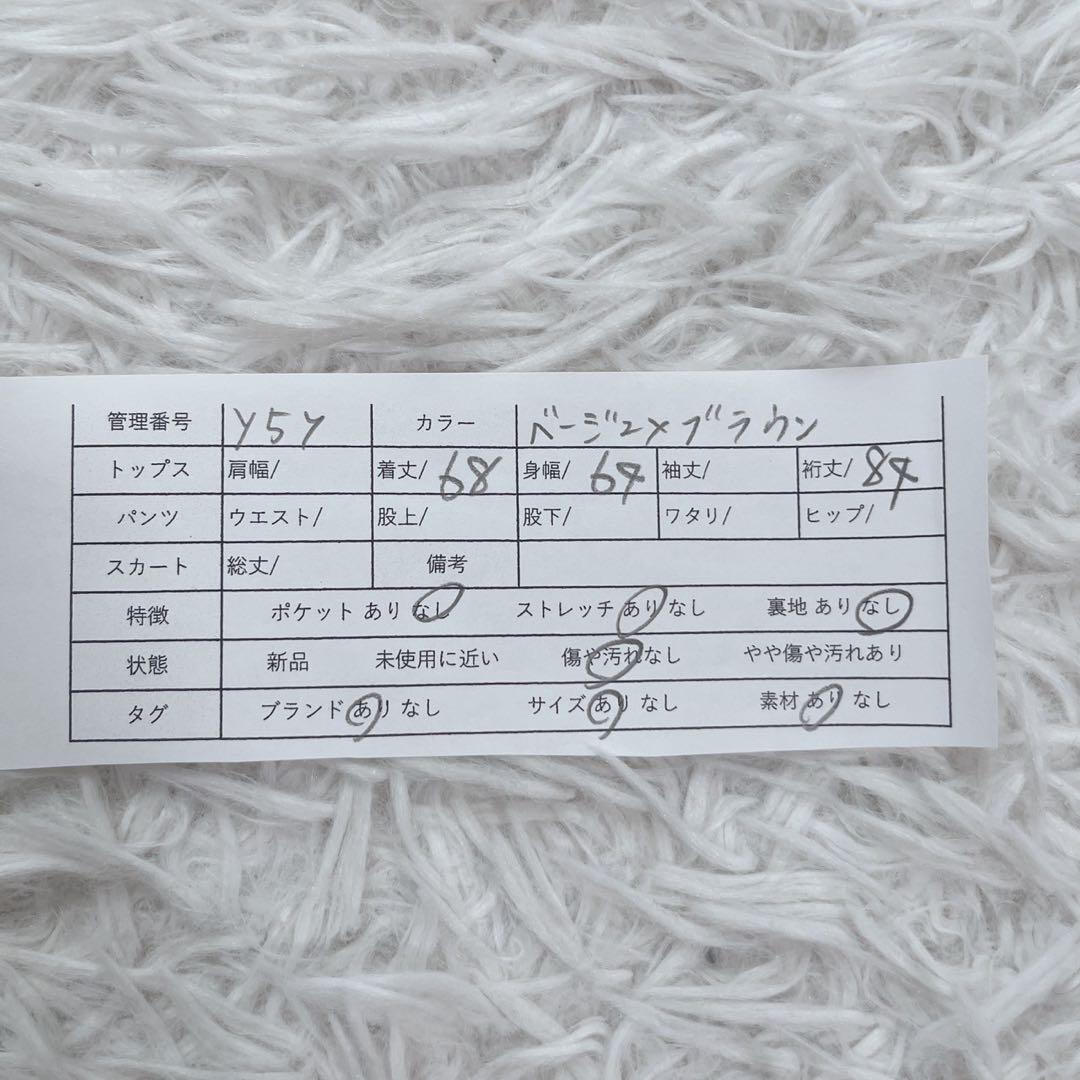 管理番号 Y5Y カラー ベージュ×ブラウン
トップス 肩幅/ 着丈/ 68 身幅/ 64 袖丈/ 裄丈/ 84
パンツ ウエスト/ 股上/ 股下/ ワタリ/ ヒップ/
スカート 総丈/ 備考
特徴 ポケット あり なし ストレッチ あり なし 裏地 あり なし
状態 新品 未使用に近い 傷や汚れなし やや傷や汚れあり
タグ ブランド あり なし サイズ あり なし 素材 あり なし